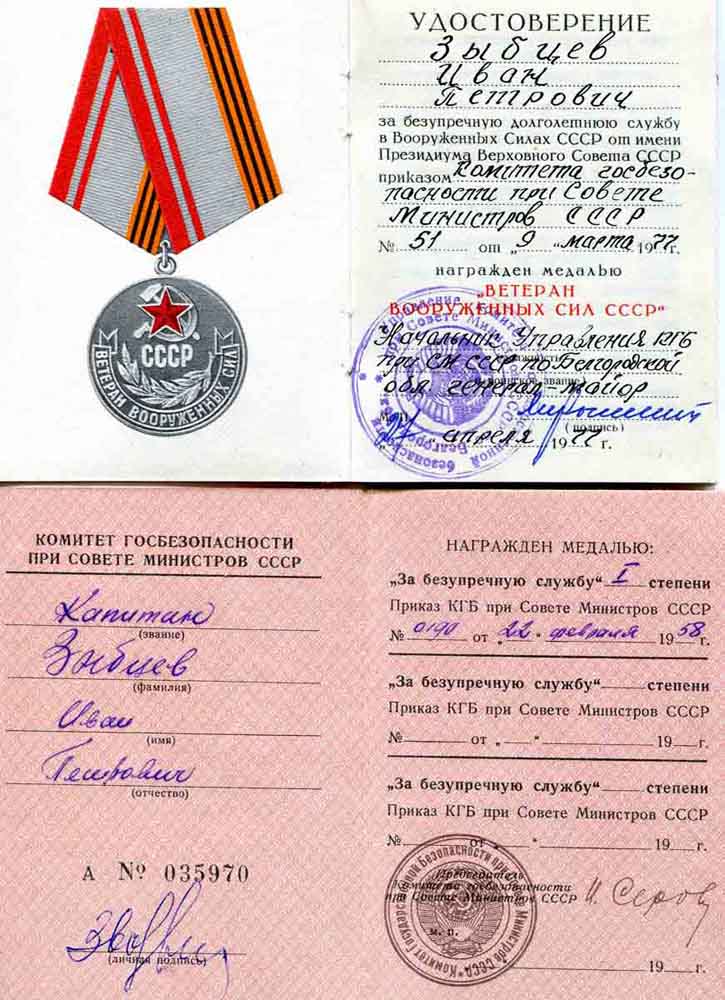 СССР
ВЕТЕРАН ВООРУЖЕННЫХ СИЛ
УДОСТОВЕРЕНИЕ
Зыбцев
Иван
Петрович
за безупречную долголетнюю службу
в Вооруженных Силах СССР от имени
Президиума Верховного Совета СССР
приказом Комитета госбезо-
пасности при Совете
Министров СССР
№ 51 от „9“ марта 1977 г.
награжден медалью
„ВЕТЕРАН
ВООРУЖЕННЫХ СИЛ СССР“
Начальник Управления КГБ
при СМ СССР по Белгородской
обл генерал-майор
(подпись)
27 апреля 1977 г.
КОМИТЕТ ГОСБЕЗОПАСНОСТИ
ПРИ СОВЕТЕ МИНИСТРОВ СССР
Капитан
(звание)
Зыбцев
(фамилия)
Иван
(имя)
Петрович
(отчество)
А № 035970
(личная подпись)
НАГРАЖДЕН МЕДАЛЬЮ:
„За безупречную службу“ I степени
Приказ КГБ при Совете Министров СССР
№ 0190 от „22“ февраля 1958 г.
„За безупречную службу“ степени
Приказ КГБ при Совете Министров СССР
№ от „ “ 19 г.
„За безупречную службу“ степени
Приказ КГБ при Совете Министров СССР
№ от „ “ 19 г.
Председатель
Комитета госбезопасности
при Совете Министров СССР И. Серов
м. п.
Комитет Государственной Безопасности при Совете Министров СССР